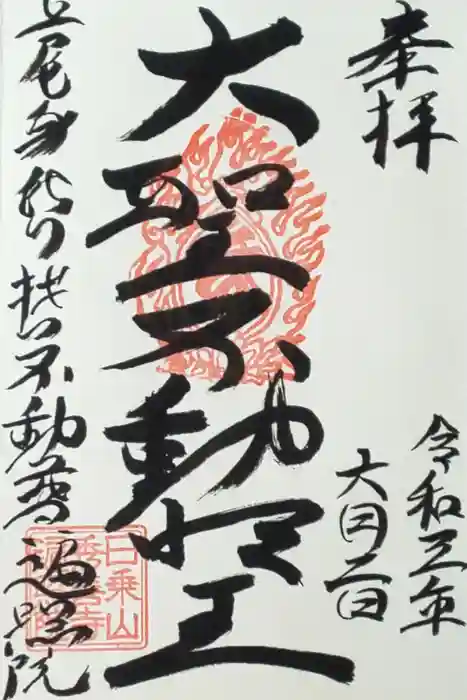 奉拝
令和三年
六月二日
大聖不動明王
上尾身代り 不動尊 遍照院
日乗山